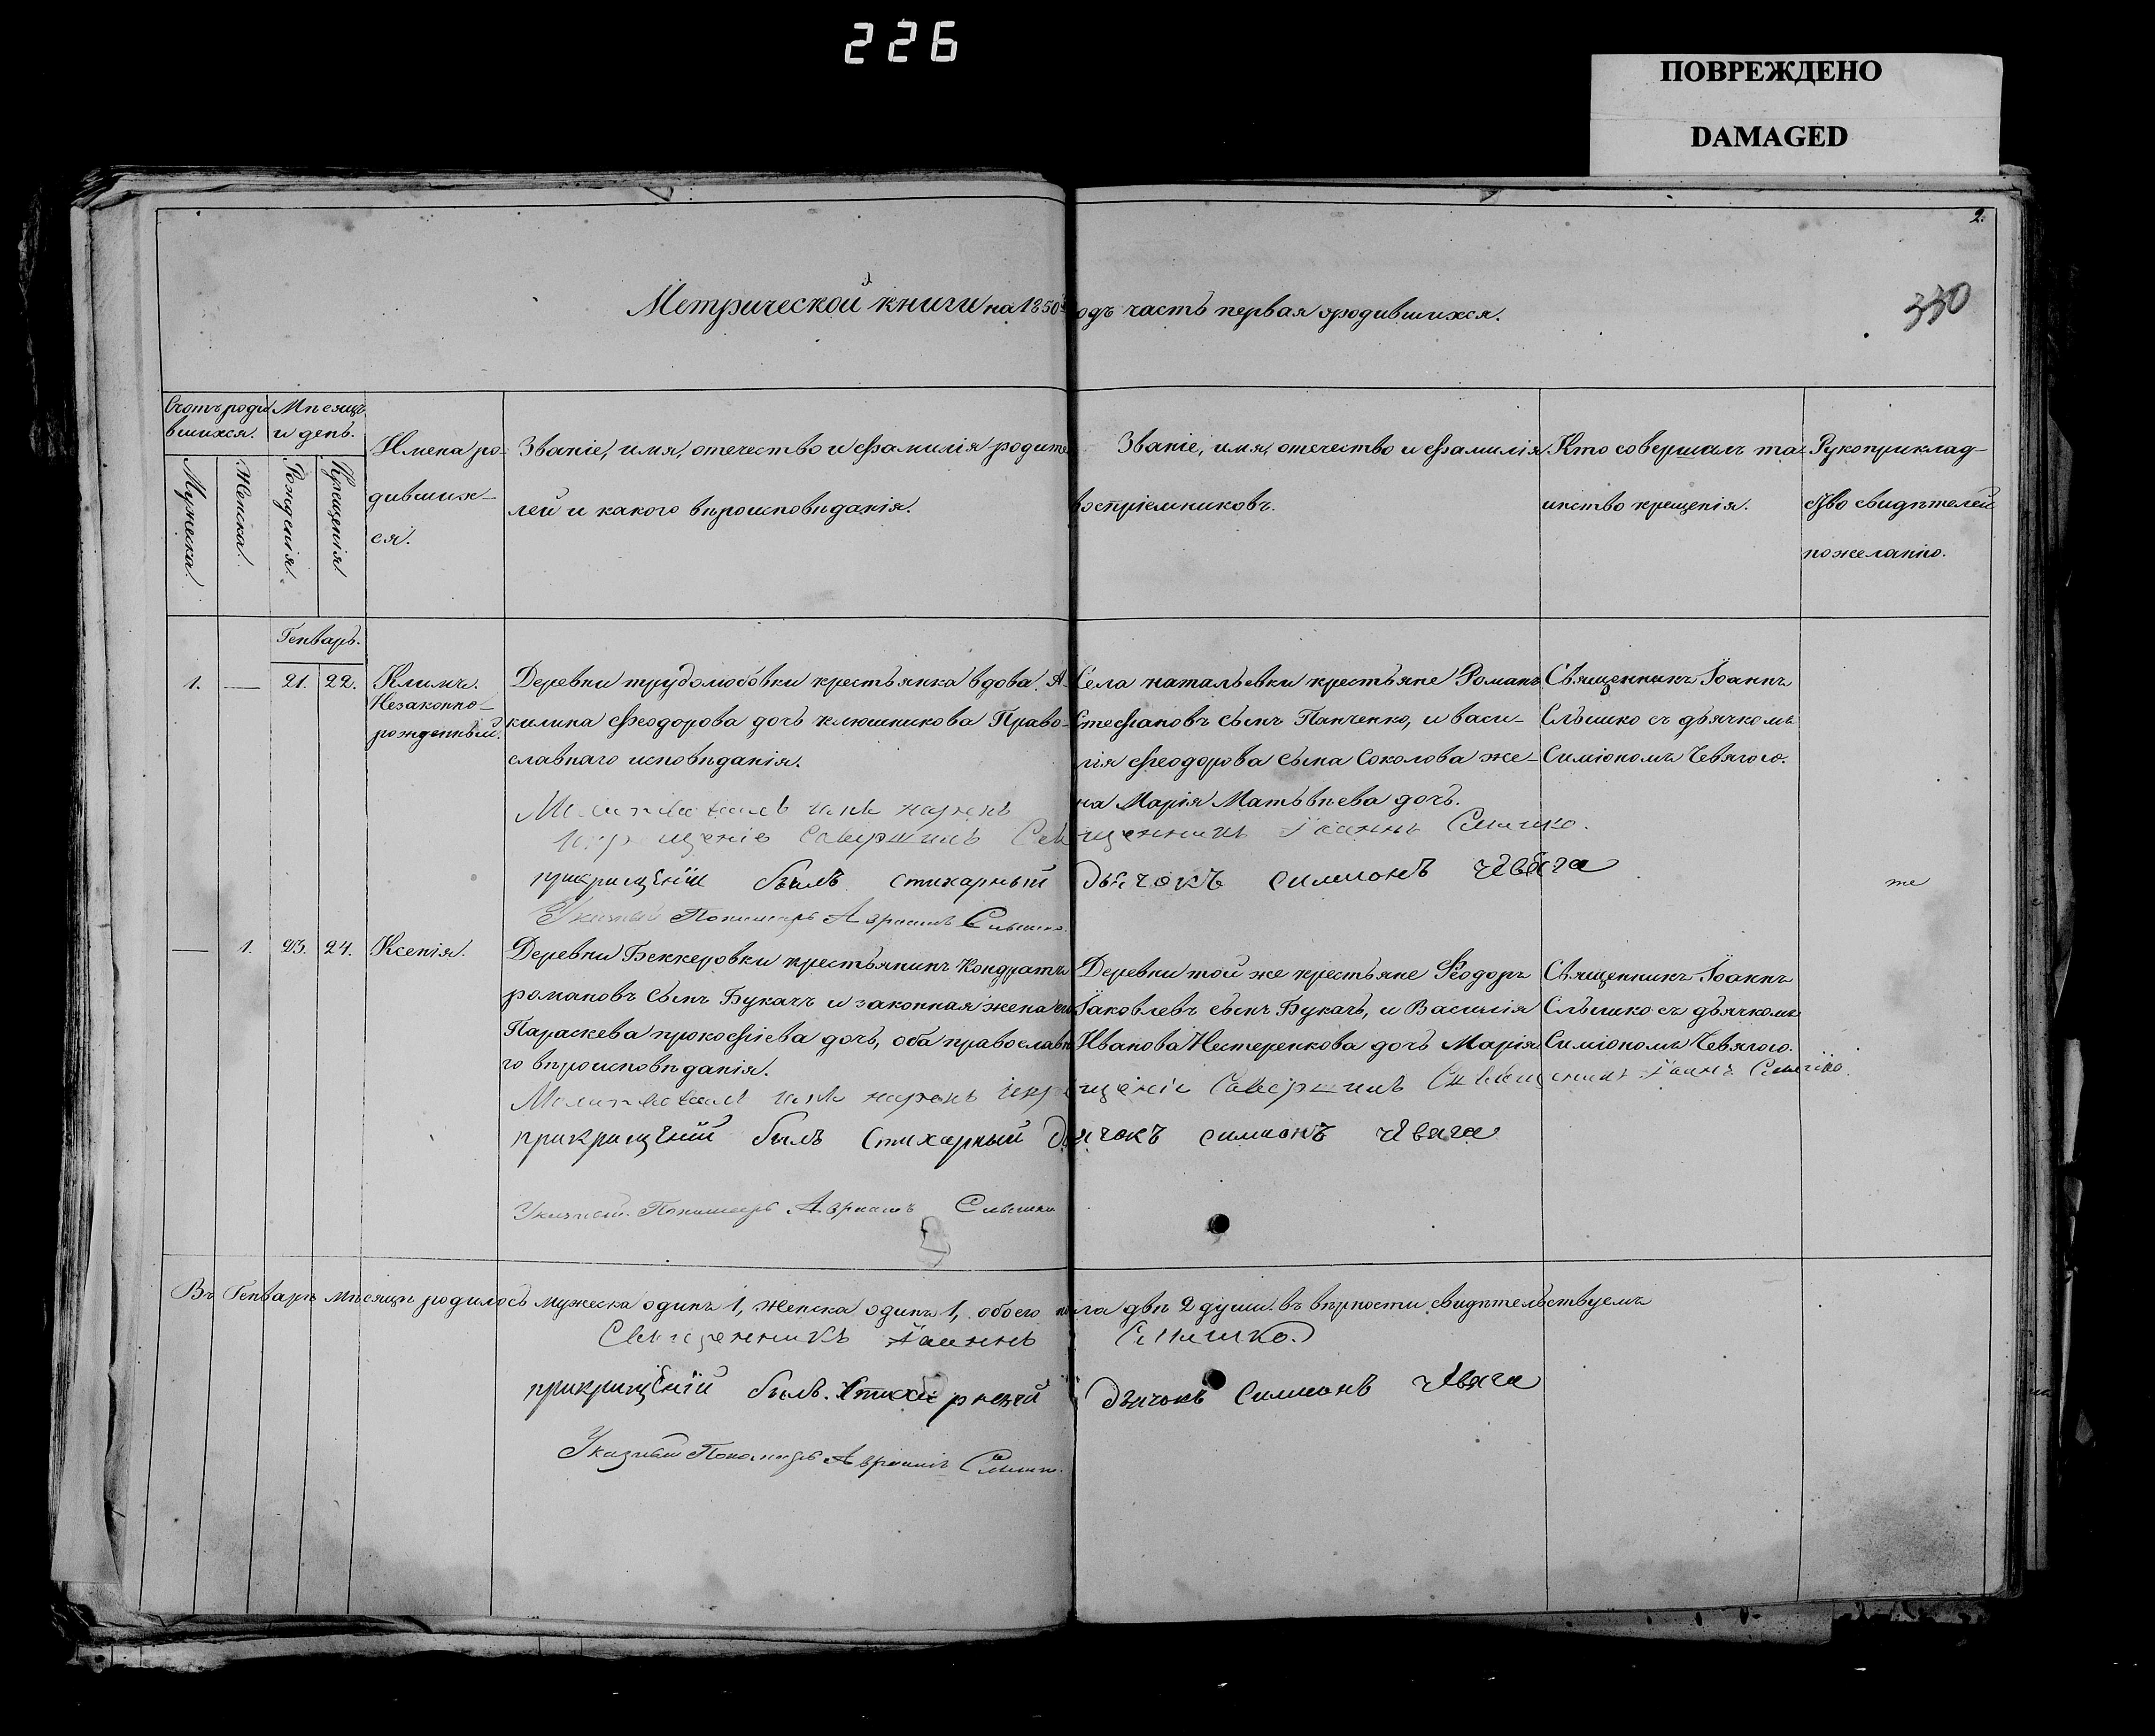 226
ПОВРЕЖДЕНО
DAMAGED
2.
330
Метрической книги на 1850 й годъ часть первая о родившихся.
Счотъ роди
вшихся.
Мѣсяцъ
и день.
Мужеска.
Женска.
Рожденія.
Крещенія.
Имена ро-
дивших-
ся.
Званіе, имя, отечество и фамилія родите
лей и какого вѣроисповѣданія.
Званіе, имя, отечество и фамилія
воспріемниковъ.
Кто совершалъ та-
инство крещенія.
Рукоприклад-
ство свидѣтелей
по желанію.
Генварь.
1. — 21. 22.
Климъ.
Незаконно-
рожденный.
Деревни трудолюбовки крестьянка вдова А-
килина Феодорова дочь клюшникова Право-
славнаго исповѣданія.
Села натальевки крестьяне Романъ
Стефановъ сынъ Панченко, и васи-
лія Феодорова сына Соколова же-
на Марія Матвѣева дочь.
Священникъ Іоаннъ
Слышко съ дьячкомъ
Симіономъ Чевягою.
Молитвовалъ имя нарекъ
и крещеніе Совершилъ Священникъ Іоаннъ Слышко.
прикрищеніи былъ стихарный дьячокъ симионъ чевяга
Указный Пономарь Авраамъ Слышко.
же
— 1. 23. 24.
Ксенія.
Деревни Беккеровки крестьянинъ Кондратъ
романовъ сынъ Букачъ и законная жена его
Параскева прокофіева дочь, оба православна
го вѣроисповѣданія.
Деревни той же крестьяне Феодоръ
Іаковлевъ сынъ Букачъ, и Василія
Иванова Нестеренкова дочь Марія
Священникъ Іоаннъ
Слышко съ дьячкомъ
Симіономъ Чевягою.
Молитвовалъ имя нарекъ и крещеніе Совершилъ Священникъ Іоаннъ Слышко.
прикрищеніи былъ Стихарный дьячокъ симионъ чевяга
Указный Пономарь Авраамъ Слышко
Въ Генварѣ мѣсяцѣ родилось мужеска одинъ 1, женска одинъ 1, обоего пола двѣ 2 души. въ вѣрности свидѣтельствуемъ
Священникъ Іоаннъ Слышко.
прикрищеніи былъ. Стихарный дьячокъ Симионъ чевяга
Указный Пономарь Авраамъ Слышко.